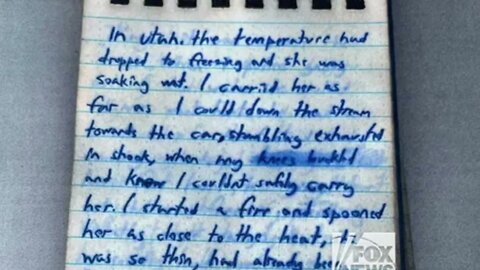 In Utah. the temperature had
dropped to freezing and she was
soaking wet. I carried her as
far as I could down the stream
towards the car, stumbling exhausted
in shock, when my knees buckled
and knew I couldn't safely carry
her. I started a fire and spooned
her as close to the heat,
was so thin, had already been
FOX
NEWS